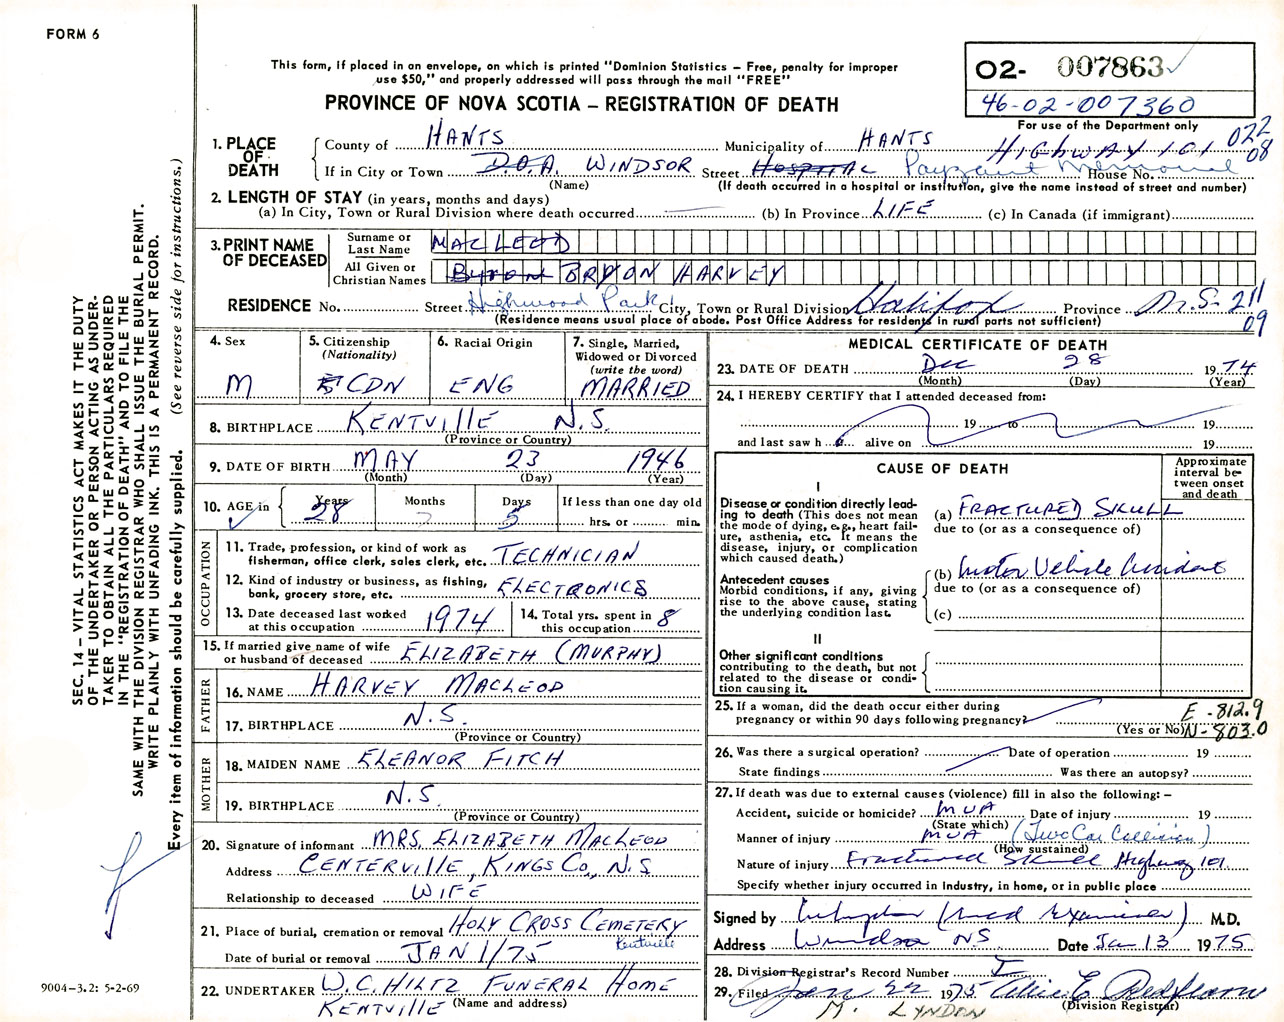 FORM 6
This form, if placed in an envelope, on which is printed "Dominion Statistics – Free, penalty for improper
use $50," and properly addressed will pass through the mail "FREE"
PROVINCE OF NOVA SCOTIA – REGISTRATION OF DEATH
O2- 007863
46-02-007360
For use of the Department only
022
08
1. PLACE OF DEATH
County of HANTS Municipality of HANTS
HIGHWAY 101
If in City or Town D.O.A. WINDSOR Street HOSPITAL Payzant Memorial House No.
(Name) (If death occurred in a hospital or institution, give the name instead of street and number)
2. LENGTH OF STAY (in years, months and days)
(a) In City, Town or Rural Division where death occurred (b) In Province LIFE (c) In Canada (if immigrant)
3. PRINT NAME OF DECEASED
Surname or Last Name MACLEOD
All Given or Christian Names Byron BRYON HARVEY
RESIDENCE No. Street Highwood Park City, Town or Rural Division Halifax Province N.S. 211
09
(Residence means usual place of abode. Post Office Address for residents in rural parts not sufficient)
4. Sex M
5. Citizenship (Nationality) CDN
6. Racial Origin ENG
7. Single, Married, Widowed or Divorced (write the word) MARRIED
8. BIRTHPLACE KENTVILLE N.S.
(Province or Country)
9. DATE OF BIRTH MAY 23 1946
(Month) (Day) (Year)
10. AGE in Years 28 Months 7 Days 5 If less than one day old
hrs. or min.
OCCUPATION
11. Trade, profession, or kind of work as fisherman, office clerk, sales clerk, etc. TECHNICIAN
12. Kind of industry or business, as fishing, bank, grocery store, etc. ELECTRONICS
13. Date deceased last worked at this occupation 1974
14. Total yrs. spent in this occupation 8
15. If married give name of wife or husband of deceased ELIZABETH (MURPHY)
FATHER
16. NAME HARVEY MACLEOD
17. BIRTHPLACE N.S.
(Province or Country)
MOTHER
18. MAIDEN NAME ELEANOR FITCH
19. BIRTHPLACE N.S.
(Province or Country)
20. Signature of informant MRS. ELIZABETH MACLEOD
Address CENTERVILLE, KINGS CO., N.S.
Relationship to deceased WIFE
21. Place of burial, cremation or removal HOLY CROSS CEMETERY
Kentville
Date of burial or removal JAN 1/75
22. UNDERTAKER W.C. HILTZ FUNERAL HOME
KENTVILLE (Name and address)
MEDICAL CERTIFICATE OF DEATH
23. DATE OF DEATH Dec 28 1974
(Month) (Day) (Year)
24. I HEREBY CERTIFY that I attended deceased from:
19 to 19
and last saw h alive on 19
CAUSE OF DEATH
Approximate interval between onset and death
I
Disease or condition directly leading to death (This does not mean the mode of dying, e.g., heart failure, asthenia, etc. It means the disease, injury, or complication which caused death.)
(a) FRACTURED SKULL
due to (or as a consequence of)
Antecedent causes
Morbid conditions, if any, giving rise to the above cause, stating the underlying condition last.
(b) Motor Vehicle Accident
due to (or as a consequence of)
(c)
II
Other significant conditions
contributing to the death, but not related to the disease or condition causing it.
25. If a woman, did the death occur either during
pregnancy or within 90 days following pregnancy?
(Yes or No)
E -812.9
N-803.0
26. Was there a surgical operation? Date of operation 19
State findings Was there an autopsy?
27. If death was due to external causes (violence) fill in also the following: –
Accident, suicide or homicide? MVA Date of injury 19
(State which)
Manner of injury MVA (Two Car Collision)
(How sustained)
Nature of injury Fractured Skull Highway 101.
Specify whether injury occurred in Industry, in home, or in public place
Signed by (Med Examiner) M.D.
Address Windsor NS Date Jan 13 1975
28. Division Registrar's Record Number
29. Filed Jan 22 1975
(Division Registrar)
M. LYNDON
SEC. 14 – VITAL STATISTICS ACT MAKES IT THE DUTY
OF THE UNDERTAKER OR PERSON ACTING AS UNDER-
TAKER TO OBTAIN ALL THE PARTICULARS REQUIRED
IN THE "REGISTRATION OF DEATH" AND TO FILE THE
SAME WITH THE DIVISION REGISTRAR WHO SHALL ISSUE THE BURIAL PERMIT.
WRITE PLAINLY WITH UNFADING INK. THIS IS A PERMANENT RECORD.
Every item of information should be carefully supplied. (See reverse side for instructions.)
9004-3.2: 5-2-69